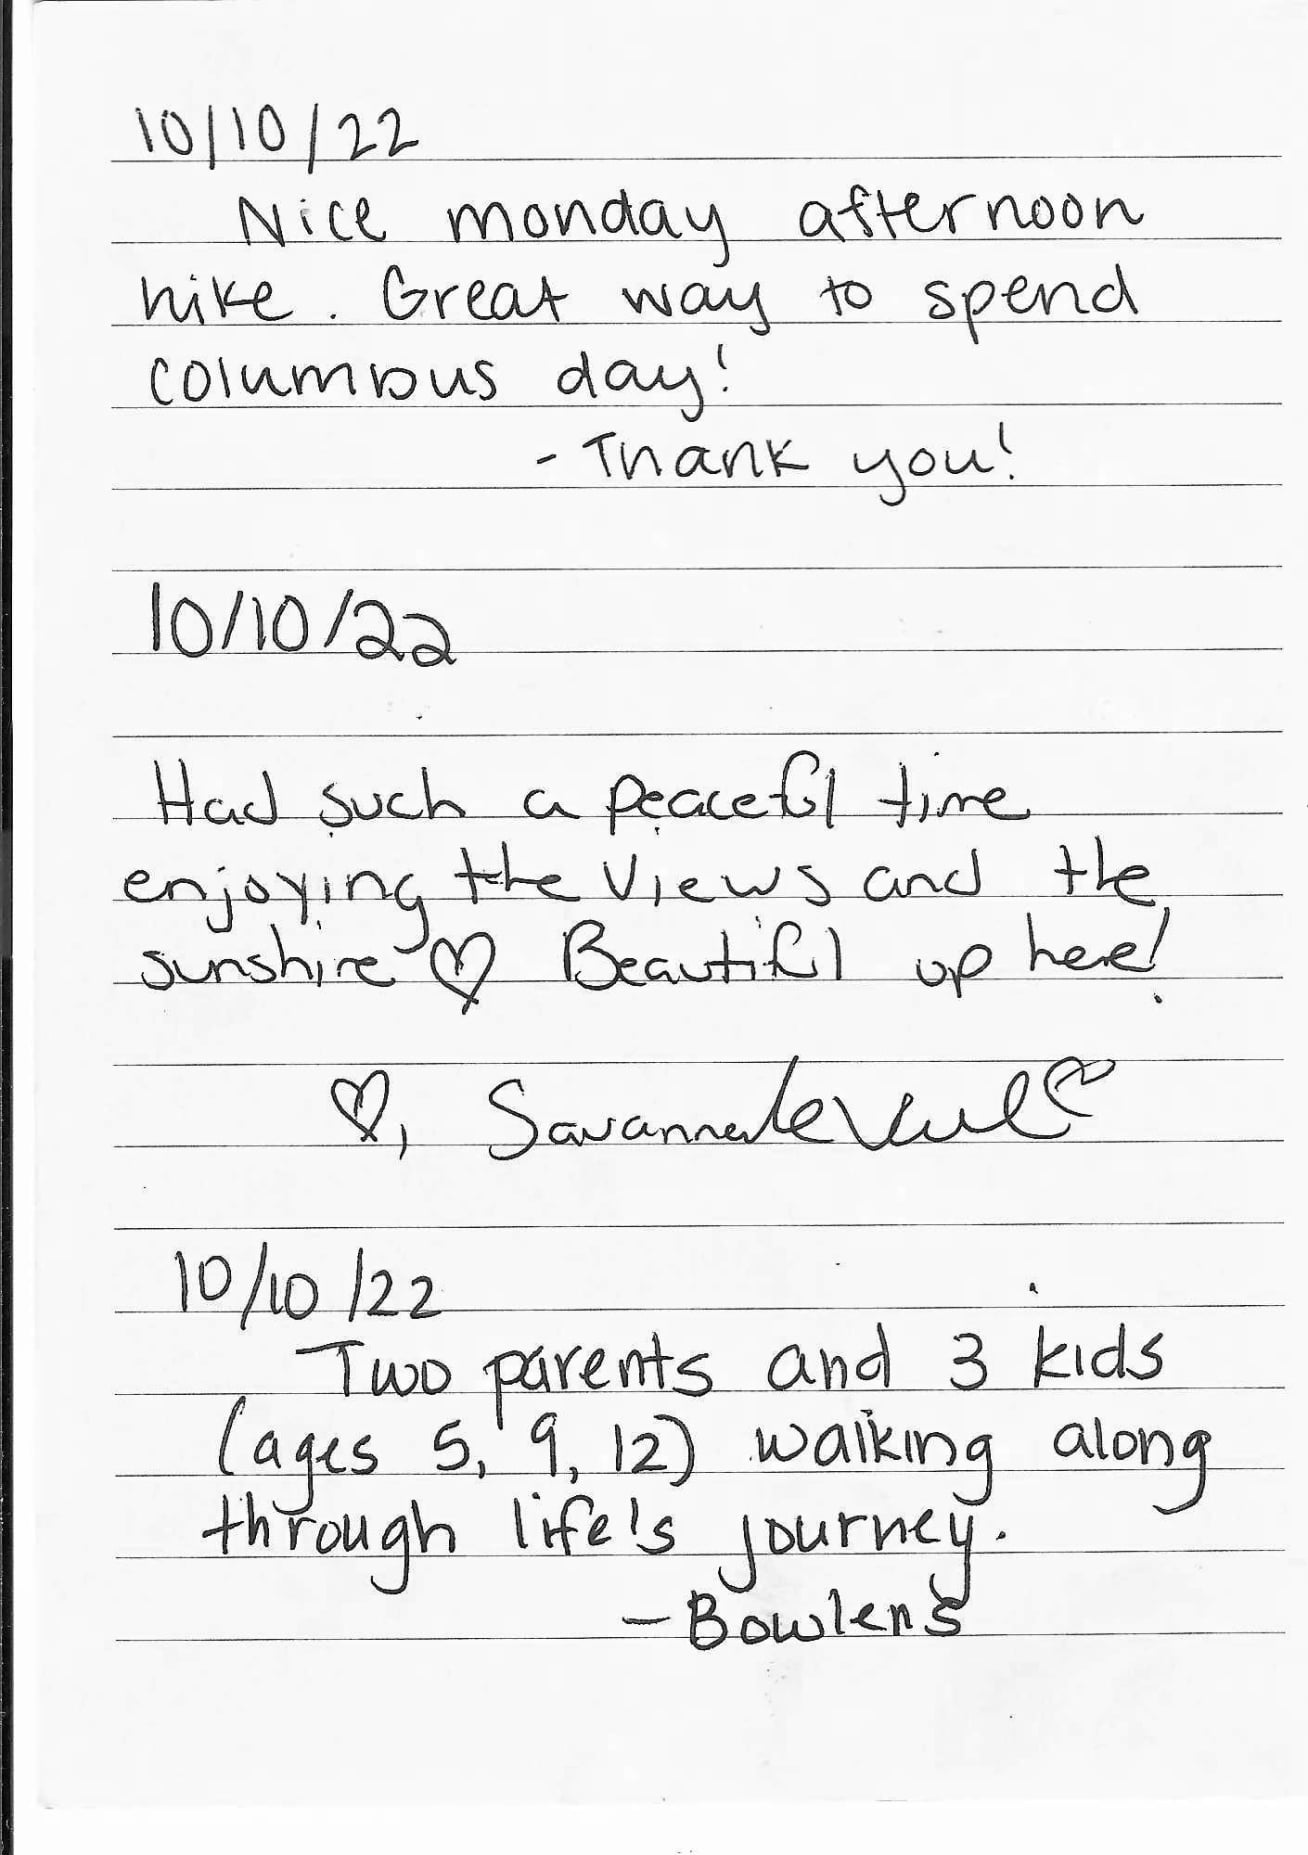 10/10/22
Nice monday afternoon
hike. Great way to spend
columbus day!
- Thank you!
10/10/22
Had such a peaceful time
enjoying the views and the
sunshire ♡ Beautiful up here!
♡, Savanna
10/10/22
Two parents and 3 kids
(ages 5, 9, 12) walking along
through life's journey.
- Bowlens